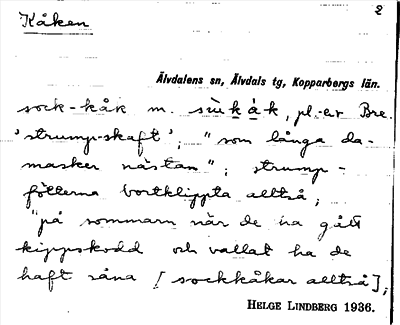 2
Kåken
Älvdalens sn, Älvdals tg, Kopparbergs län.
sock-kåk m. sùkåk, pl. -er Bre.
'strump-skaft'; "som långa da-
masker nästan"; strump-
fötterna bortklippta alltså;
"på sommarn när de ha gått
kippskodd och vallat ha de
haft såna [sockkåkar alltså];
HELGE LINDBERG 1936.